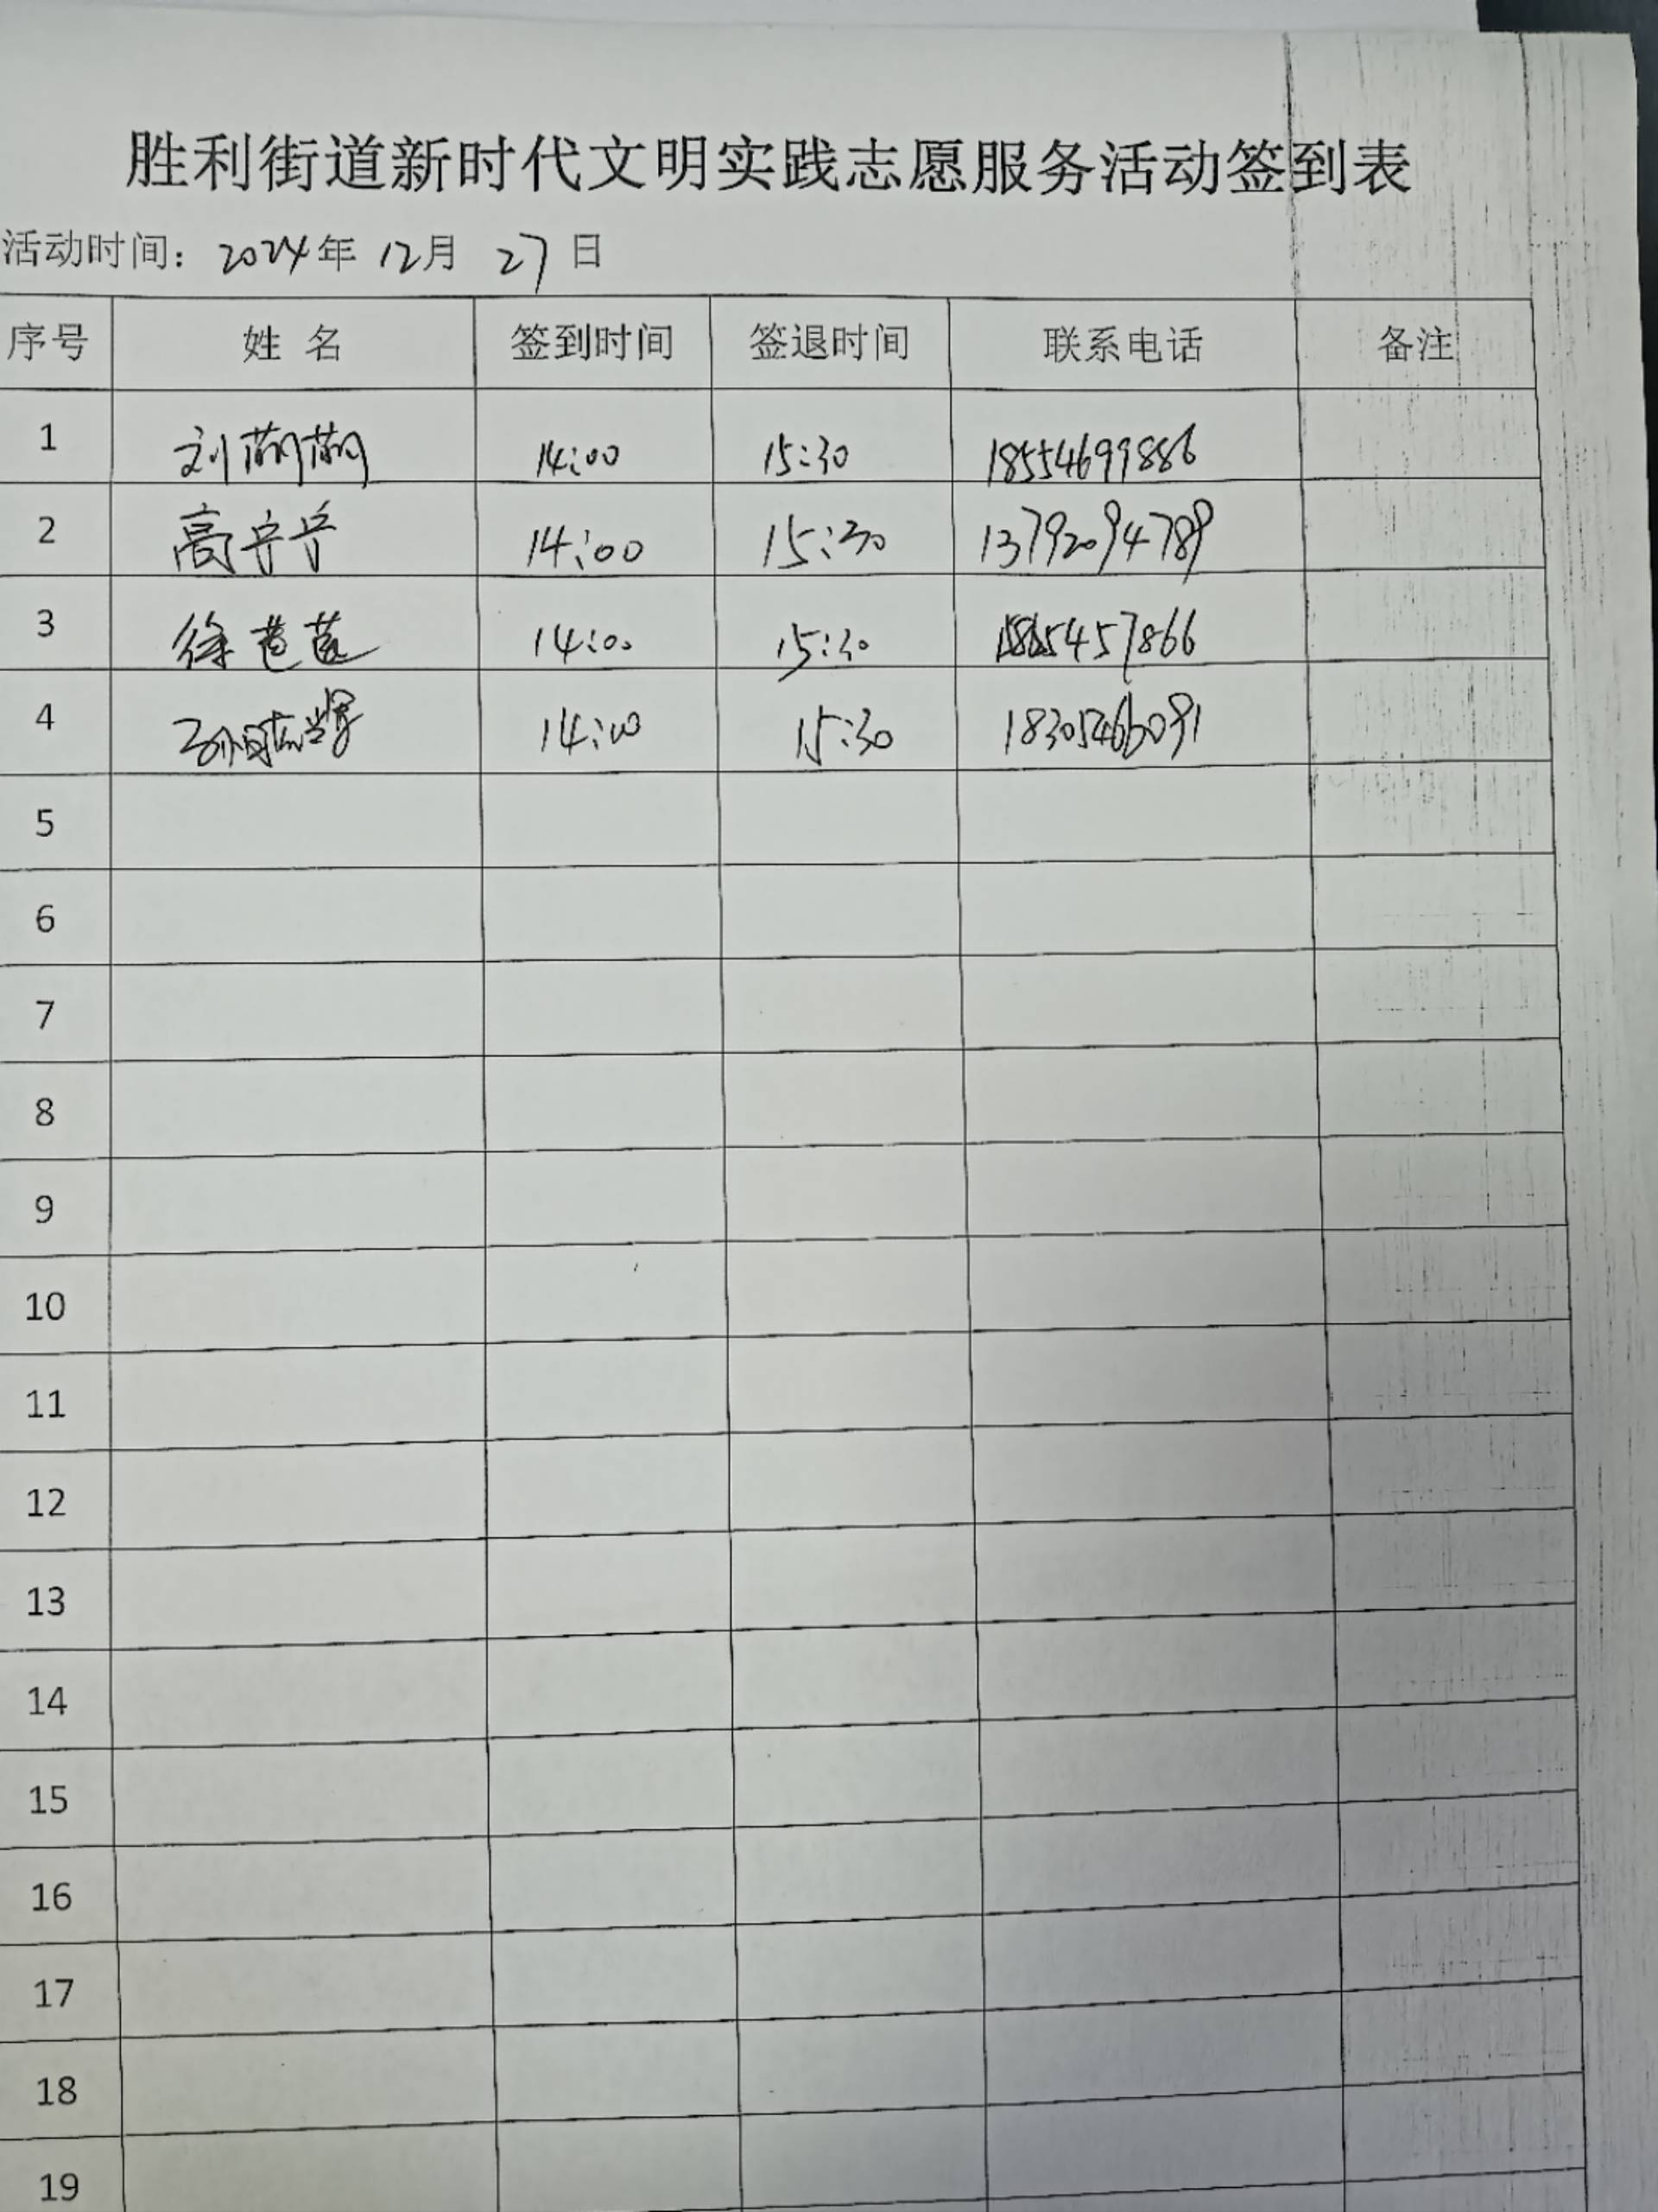 胜利街道新时代文明实践志愿服务活动签到表
活动时间：2024年 12月 27日
序号 姓 名 签到时间 签退时间 联系电话 备注
1 刘 14:00 15:30 18554699886
2 高宁宁 14:00 15:30 13792094789
3 徐 14:00 15:30
4 孙 14:00 15:30 18305466091
5
6
7
8
9
10
11
12
13
14
15
16
17
18
19